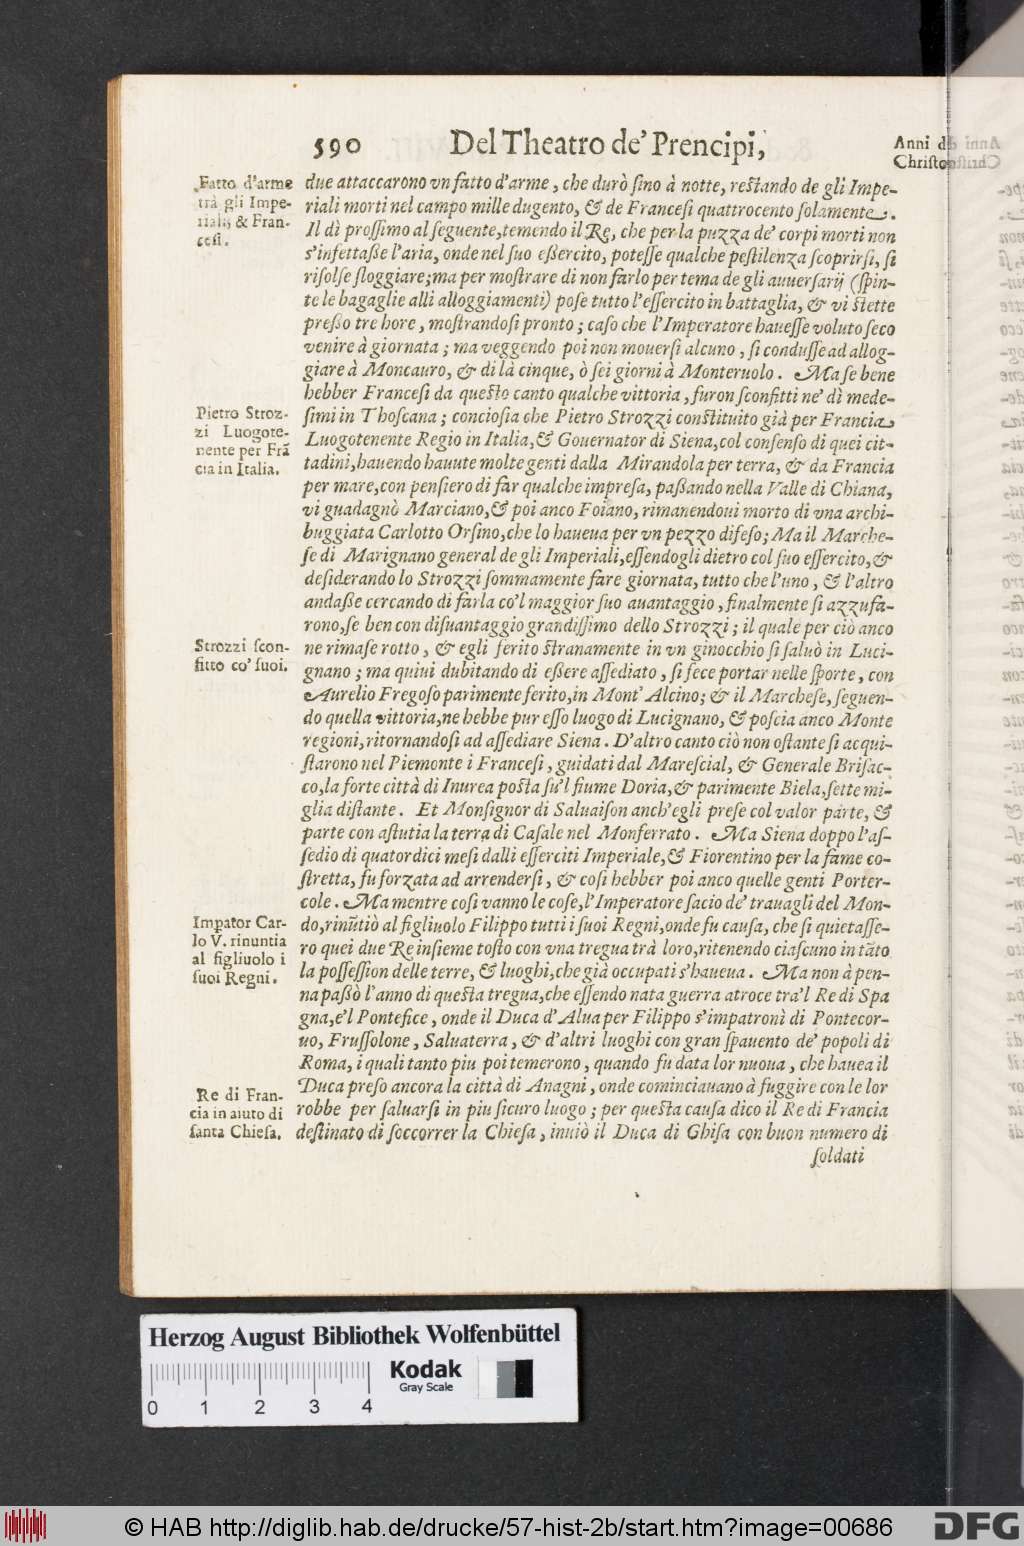 590 Del Theatro de' Prencipi,
Anni di
Christo
Fatto d'arme
trà gli Impe-
riali, & Fran-
cesi.
due attaccarono vn fatto d'arme, che durò sino à notte, restando de gli Impe-
riali morti nel campo mille dugento, & de Francesi quattrocento solamente.
Il dì prossimo al seguente, temendo il Re, che per la puzza de' corpi morti non
s'infettaße l'aria, onde nel suo eßercito, potesse qualche pestilenza scoprirsi, si
risolse sloggiare; ma per mostrare di non farlo per tema de gli auuersarij (spin-
te le bagaglie alli alloggiamenti) pose tutto l'essercito in battaglia, & vi stette
preßo tre hore, mostrandosi pronto; caso che l'Imperatore hauesse voluto seco
venire à giornata; ma veggendo poi non mouersi alcuno, si condusse ad allog-
giare à Moncauro, & di là cinque, ò sei giorni à Monteruolo. Ma se bene
hebber Francesi da questo canto qualche vittoria, furon sconfitti ne' dì mede-
Pietro Stroz-
zi Luogote-
nente per Frā
cia in Italia.
simi in Thoscana; conciosia che Pietro Strozzi constituito già per Francia
Luogotenente Regio in Italia, & Gouernator di Siena, col consenso di quei cit-
tadini, hauendo hauute molte genti dalla Mirandola per terra, & da Francia
per mare, con pensiero di far qualche impresa, paßando nella Valle di Chiana,
vi guadagnò Marciano, & poi anco Foiano, rimanendoui morto di vna archi-
buggiata Carlotto Orsino, che lo haueua per vn pezzo difeso; Ma il Marche-
se di Marignano general de gli Imperiali, essendogli dietro col suo essercito, &
desiderando lo Strozzi sommamente fare giornata, tutto che l'uno, & l'altro
andaße cercando di farla co'l maggior suo auantaggio, finalmente si azzufa-
rono, se ben con disuantaggio grandissimo dello Strozzi; il quale per ciò anco
Strozzi scon-
fitto co' suoi.
ne rimase rotto, & egli ferito stranamente in vn ginocchio si saluò in Luci-
gnano; ma quiui dubitando di eßere assediato, si fece portar nelle sporte, con
Aurelio Fregoso parimente ferito, in Mont' Alcino; & il Marchese, seguen-
do quella vittoria, ne hebbe pur esso luogo di Lucignano, & poscia anco Monte
regioni, ritornandosi ad assediare Siena. D'altro canto ciò non ostante si acqui-
starono nel Piemonte i Francesi, guidati dal Marescial, & Generale Brisac-
co, la forte città di Inurea posta su'l fiume Doria, & parimente Biela, sette mi-
glia distante. Et Monsignor di Saluaison anch'egli prese col valor parte, &
parte con astutia la terra di Casale nel Monferrato. Ma Siena doppo l'as-
sedio di quatordici mesi dalli esserciti Imperiale, & Fiorentino per la fame co-
stretta, fu forzata ad arrendersi, & cosi hebber poi anco quelle genti Porter-
cole. Ma mentre cosi vanno le cose, l'Imperatore sacio de' trauagli del Mon-
Impator Car-
lo V. rinuntia
al figliuolo i
suoi Regni.
do, rinūtiò al figliuolo Filippo tutti i suoi Regni, onde fu causa, che si quietasse-
ro quei due Re insieme tosto con vna tregua trà loro, ritenendo ciascuno in tāto
la possession delle terre, & luoghi, che già occupati s'haueua. Ma non à pen-
na paßò l'anno di questa tregua, che essendo nata guerra atroce tra'l Re di Spa
gna, e'l Pontefice, onde il Duca d'Alua per Filippo s'impatronì di Pontecor-
uo, Frussolone, Saluaterra, & d'altri luoghi con gran spauento de' popoli di
Roma, i quali tanto piu poi temerono, quando fu data lor nuoua, che hauea il
Duca preso ancora la città di Anagni, onde cominciauano à fuggire con le lor
Re di Fran-
cia in aiuto di
santa Chiesa.
robbe per saluarsi in piu sicuro luogo; per questa causa dico il Re di Francia
destinato di soccorrer la Chiesa, inuiò il Duca di Ghisa con buon numero di
soldati
Herzog August Bibliothek Wolfenbüttel
Kodak
Gray Scale
0 1 2 3 4
© HAB http://diglib.hab.de/drucke/57-hist-2b/start.htm?image=00686
DFG